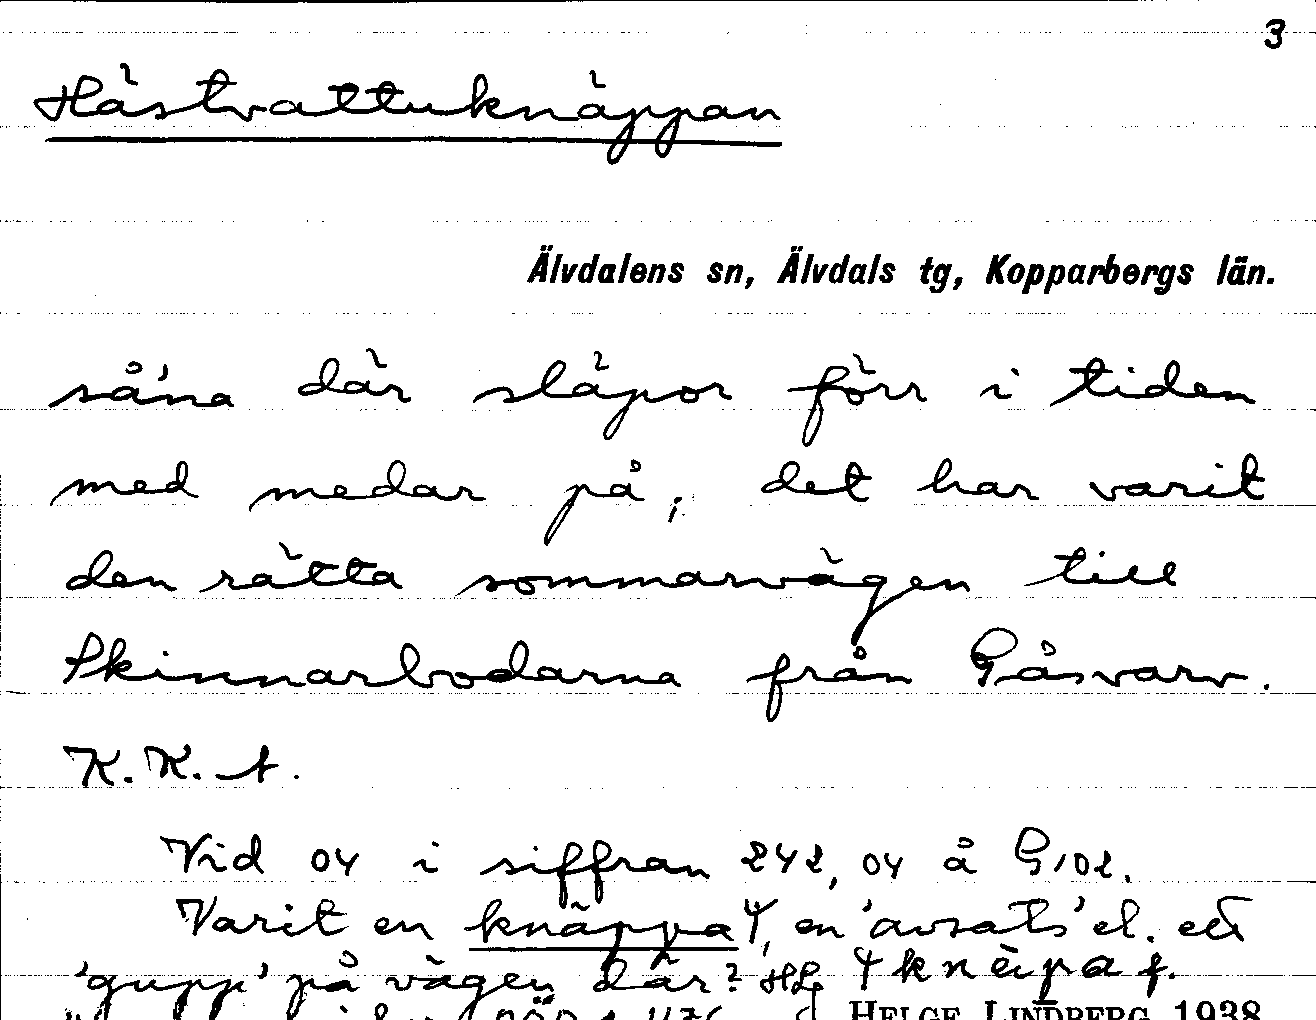 3
Hästvattuknäppan
Älvdalens sn, Älvdals tg, Kopparbergs län.
såna där släpor förr i tiden
med medar på, det har varit
den rätta sommarvägen till
Skinnarbodarna från Gåsvarv.
K.K.A.
Vid 04 i siffran 242,04 å G102.
Varit en knäppa, en 'avsats' el. ett
'gupp' på vägen där? HL. knèpa f.
HELGE LINDBERG 1938